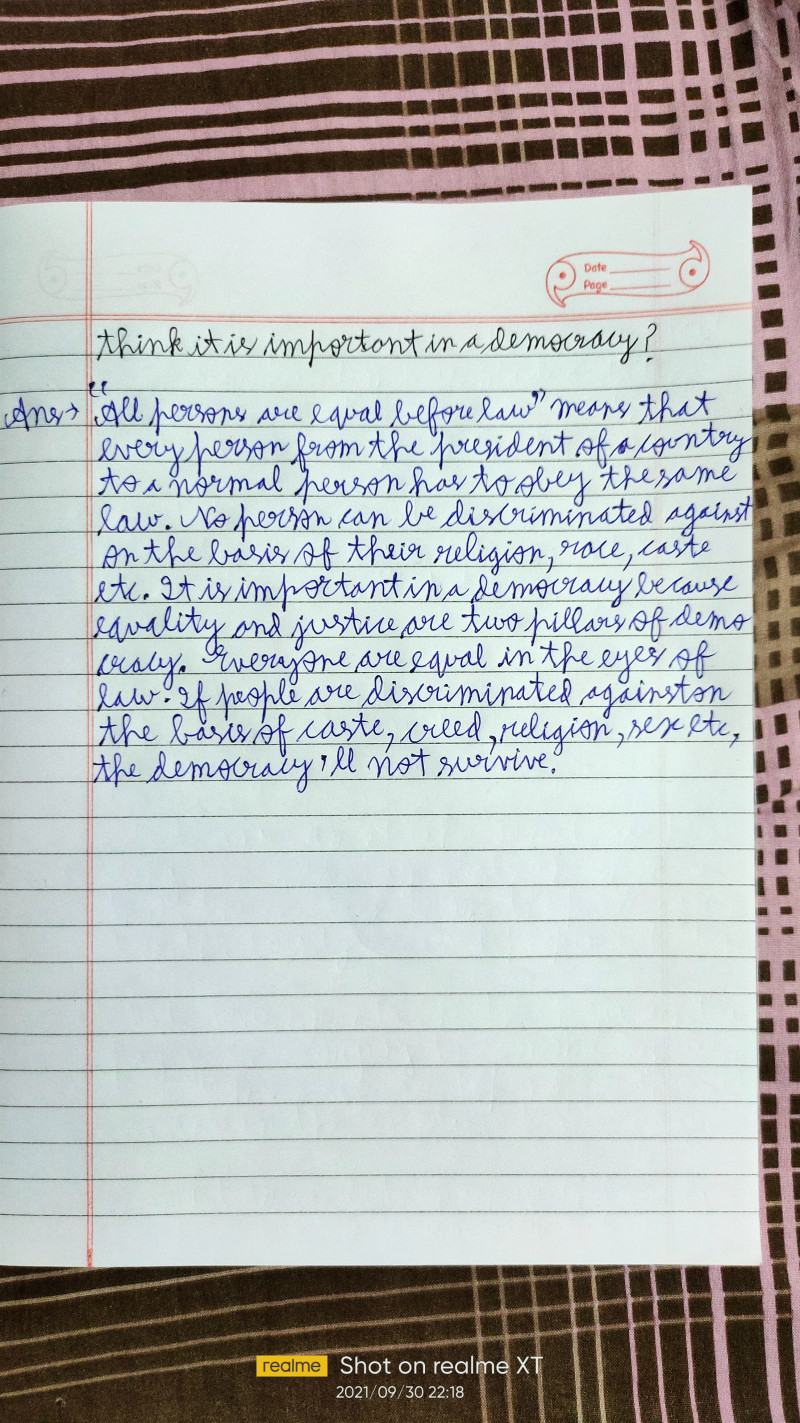 Date
Page
think it is important in a democracy?
Ans→ "All persons are equal before law" means that
every person from the president of a country
to a normal person has to obey the same
law. No person can be discriminated against
on the basis of their religion, race, caste
etc. It is important in a democracy because
equality and justice are two pillars of demo
cracy. Everyone are equal in the eyes of
law. If people are discriminated against on
the basis of caste, creed, religion, sex etc,
the democracy'll not survive.
realme Shot on realme XT
2021/09/30 22:18